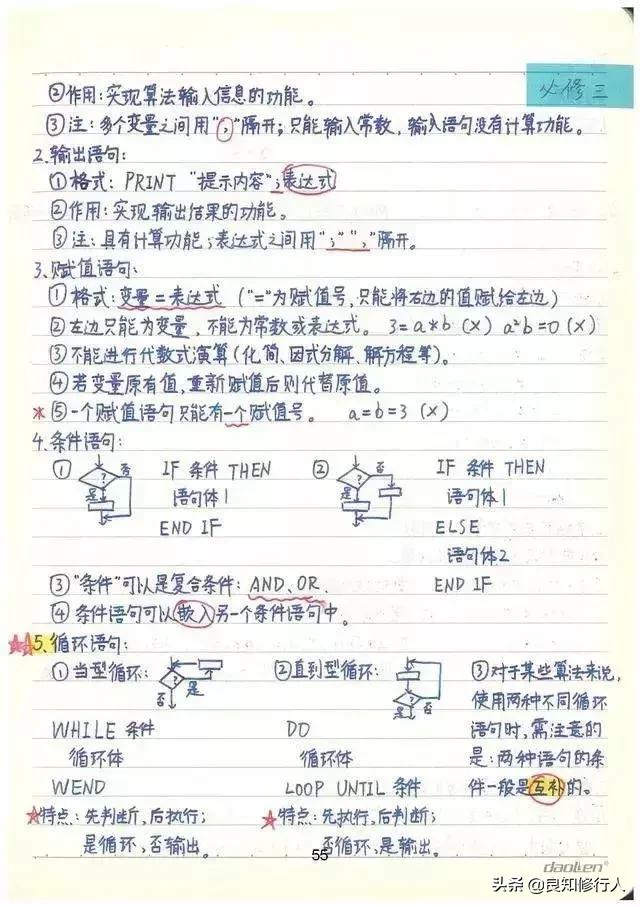 必修三
②作用:实现算法输入信息的功能。
③注:多个变量之间用","隔开;只能输入常数,输入语句没有计算功能。
2.输出语句:
①格式: PRINT "提示内容";表达式
②作用:实现输出结果的功能。
③注:具有计算功能;表达式之间用";"","隔开。
3.赋值语句:
①格式:变量=表达式 ("="为赋值号,只能将右边的值赋给左边)
②左边只能为变量,不能为常数或表达式。 3=a*b (×) a²b=0 (×)
③不能进行代数式演算(化简、因式分解、解方程等)。
④若变量原有值,重新赋值后则代替原值。
*⑤一个赋值语句只能有一个赋值号。 a=b=3 (×)
4.条件语句:
① ? 否 是 IF 条件 THEN ② ? 否 是 IF 条件 THEN
语句体1 语句体1
END IF ELSE
语句体2
③"条件"可以是复合条件: AND、OR. END IF
④条件语句可以嵌入另一个条件语句中。
5.循环语句:
①当型循环: ? 是 否 ②直到型循环: ? 否 是 ③对于某些算法来说,
使用两种不同循环
WHILE 条件 DO 语句时,需注意的
循环体 循环体 是:两种语句的条
WEND LOOP UNTIL 条件 件一般是互补的。
☆特点:先判断,后执行; ☆特点:先执行,后判断;
是循环,否输出。 否循环,是输出。
55
daolien®
头条 @良知修行人